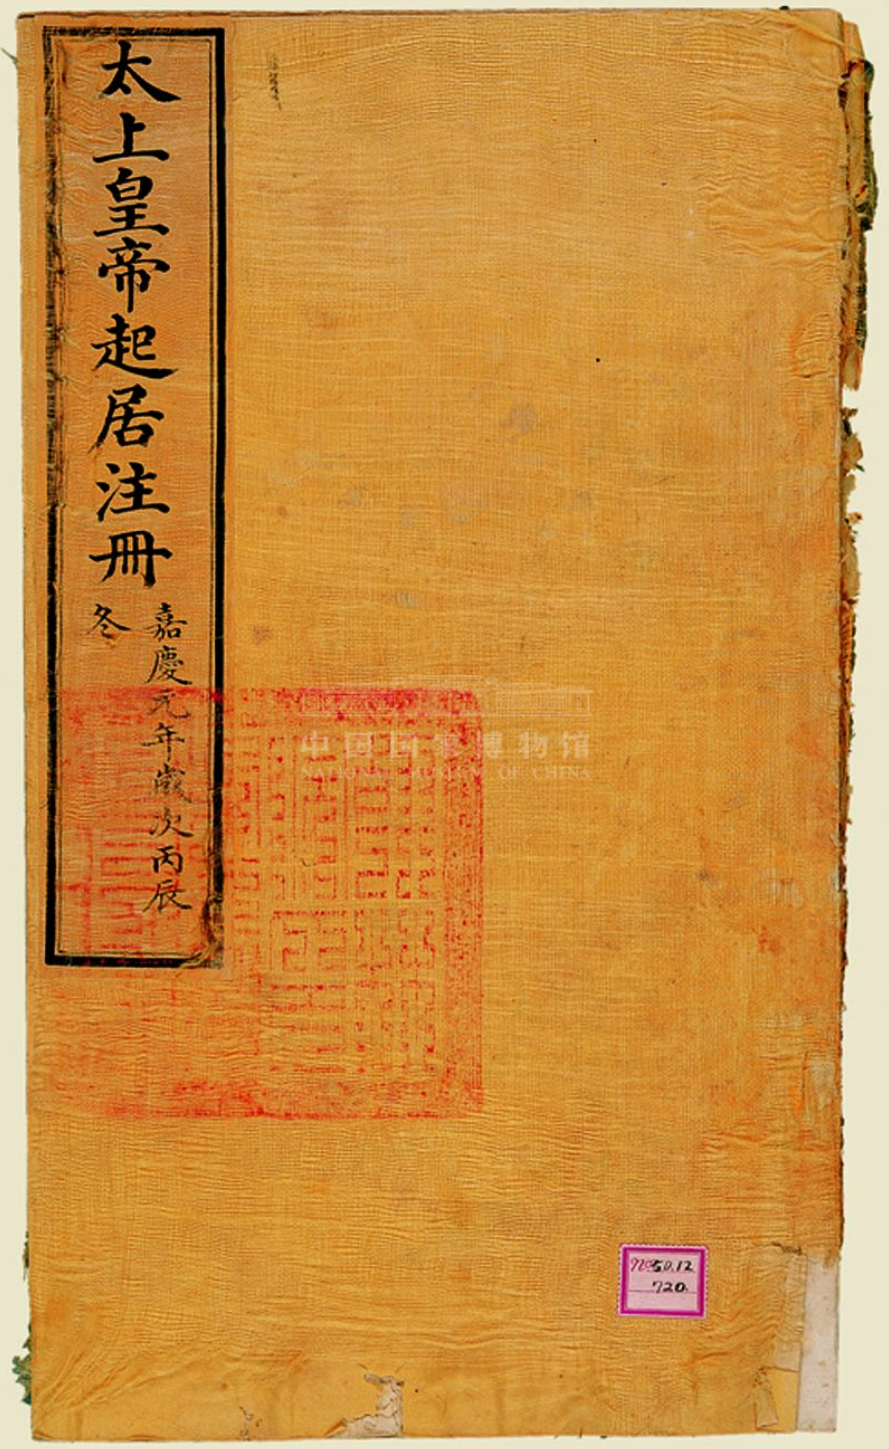 太上皇帝起居注冊
嘉慶元年歲次丙辰
冬
中国国家博物馆
NATIONAL MUSEUM OF CHINA
50.12
720.